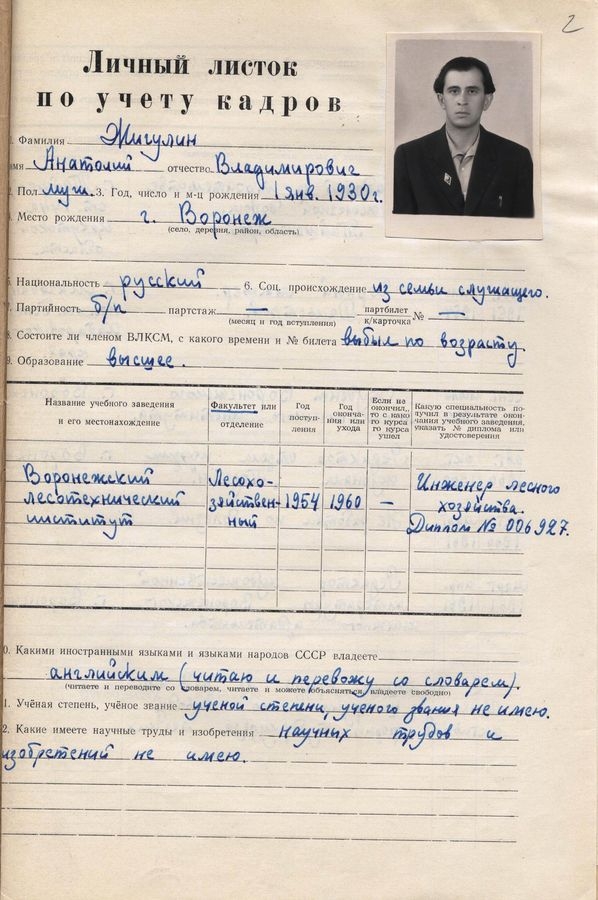 2
Личный листок
по учету кадров
. Фамилия Жигулин
имя Анатолий отчество Владимирович
. Пол муж. 3. Год, число и м-ц рождения 1 янв. 1930 г.
. Место рождения г. Воронеж
(село, деревня, район, область)
. Национальность русский 6. Соц. происхождение из семьи служащего.
. Партийность б/п партстаж — партбилет № —
(месяц и год вступления) к/карточка
. Состоите ли членом ВЛКСМ, с какого времени и № билета выбыл по возрасту
9. Образование высшее.
Название учебного заведения и его местонахождение
Факультет или отделение
Год поступления
Год окончания или ухода
Если не окончил, то с какого курса ушел
Какую специальность получил в результате окончания учебного заведения, указать № диплома или удостоверения
Воронежский лесотехнический институт
Лесохозяйственный
1954
1960
—
Инженер лесного хозяйства. Диплом № 006927.
0. Какими иностранными языками и языками народов СССР владеете
английским (читаю и перевожу со словарем).
(читаете и переводите со словарем, читаете и можете объясняться, владеете свободно)
1. Учёная степень, учёное звание ученой степени, ученого звания не имею.
2. Какие имеете научные труды и изобретения научных трудов и
изобретений не имею.